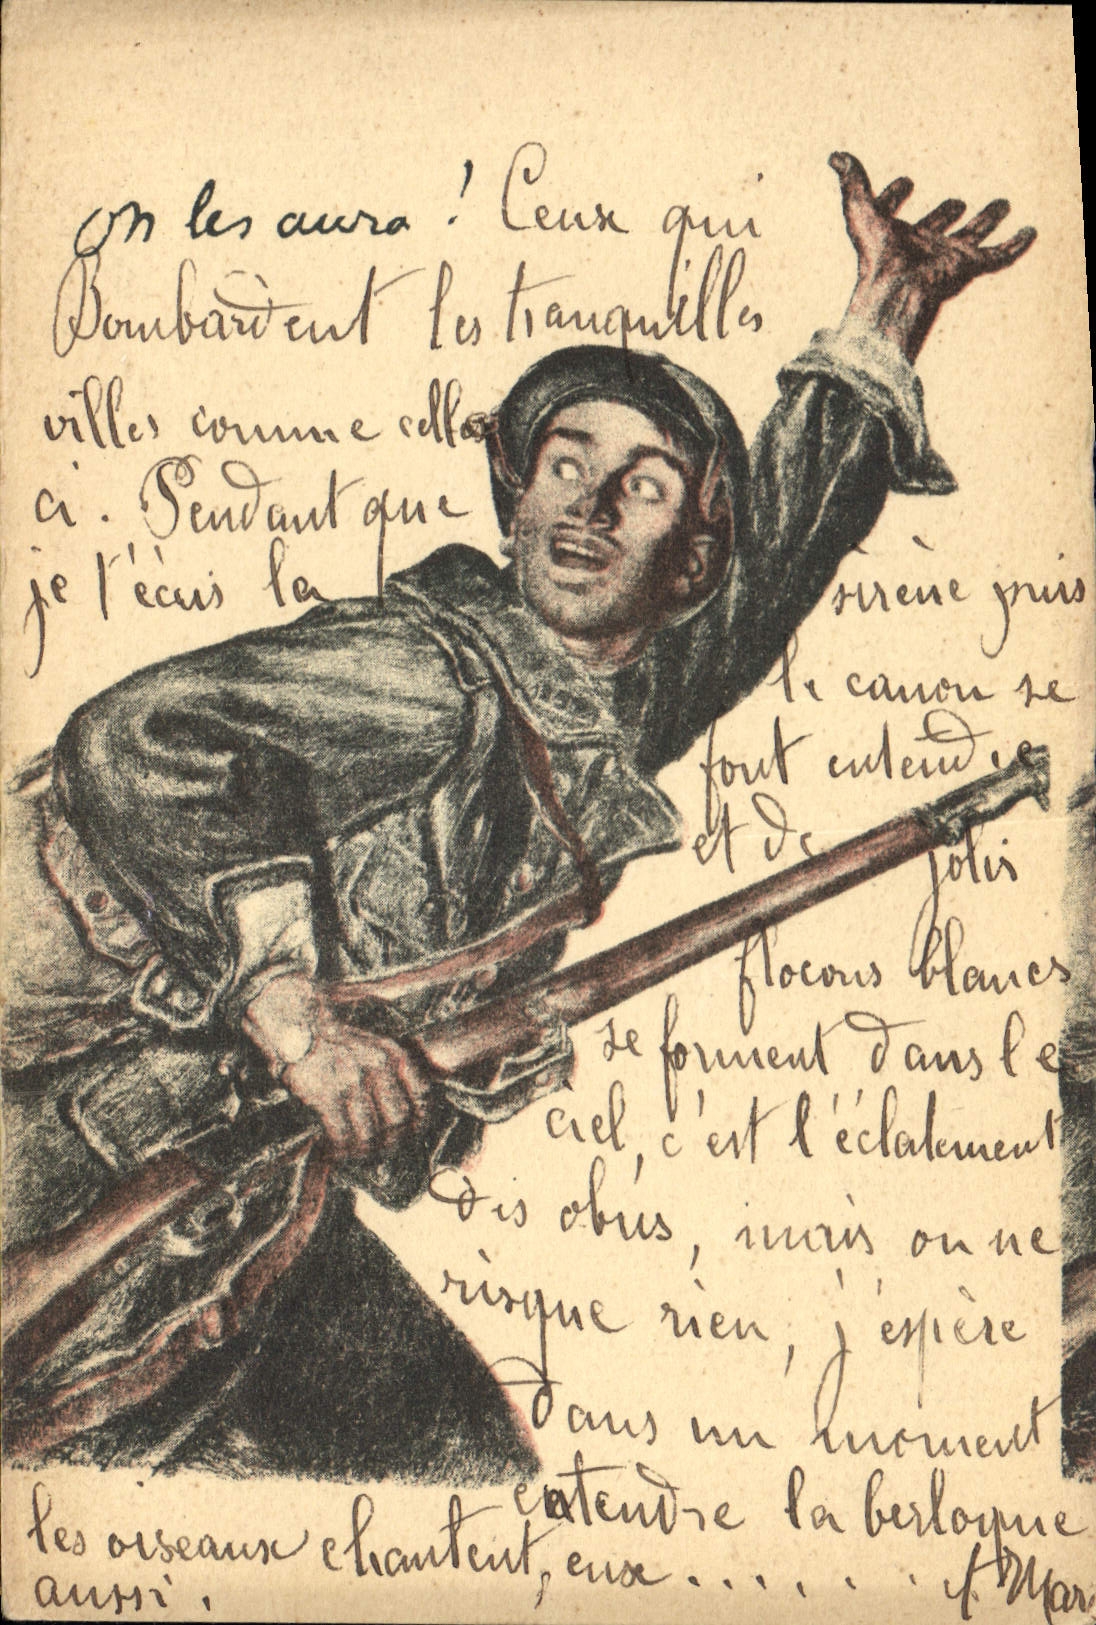 on les aura ! Ceux qui
Bombardent les tranquilles
villes comme celles
ci. Pendant que
je t'écris la sirène puis
le canon se
font entendre
et de jolis
flocons blancs
se forment dans le
ciel, c'est l'éclatement
des obus, mais on ne
risque rien, j'espère
dans un moment
entendre la berloque
les oiseaux chantent, eux . . . . . .
aussi.